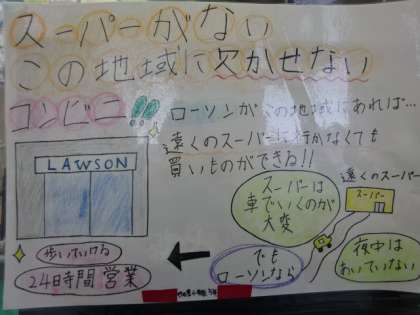 スーパーがない
この地域に欠かせない
コンビニ!!
ローソンがこの地域にあれば…
遠くのスーパーに行かなくても
買いものができる!!
LAWSON
歩いていける
24時間営業
でも
ローソンなら
スーパーは
車でいくのが
大変
遠くのスーパー
スーパー
夜中は
あいていない